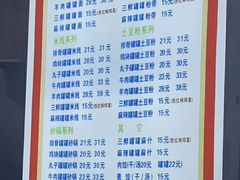 羊肉罐罐面 28元 30元
三鲜罐罐面 15元
麻辣罐罐面 15元
三鲜罐罐粉带 15元
麻辣罐罐粉带 15元
米线系列
排骨罐罐米线 21元 31元
鸡块罐罐米线 21元 30元
丸子罐罐米线 21元 30元
牛肉罐罐米线 22元 30元
羊肉罐罐米线 28元 35元
三鲜罐罐米线 15元
麻辣罐罐米线 15元
土豆粉系列
排骨罐罐土豆粉 21元
鸡块罐罐土豆粉 21元
丸子罐罐土豆粉 21元
牛肉罐罐土豆粉 22元
羊肉罐罐土豆粉 28元
三鲜罐罐土豆粉 15元
麻辣罐罐土豆粉 15元
砂锅系列
排骨罐罐砂锅 21元 31元
鸡块罐罐砂锅 21元 30元
丸子罐罐砂锅 21元 30元
牛肉罐罐砂锅 22元
其 它
三鲜罐罐麻什 15元
麻辣罐罐麻什 15元
肉饺(干/汤)20元 罐罐22元
素 饺(干/汤) 15元